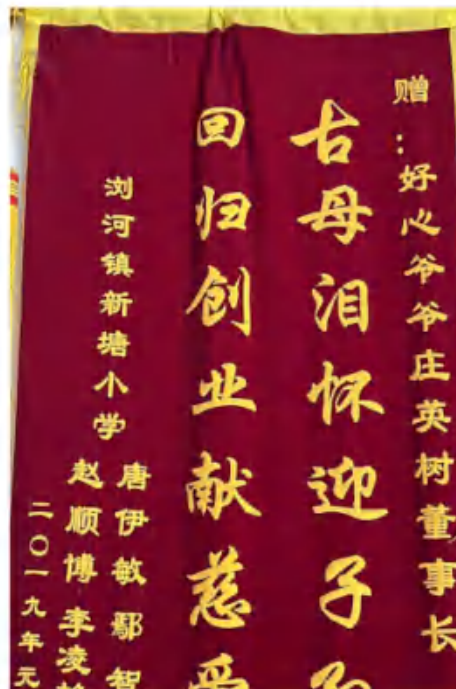 赠：好心爷爷庄英树董事长
古母泪怀迎子
回归创业献慈
浏河镇新塘小学
唐伊敏 鄢智
赵顺博 李凌
二〇一九年元